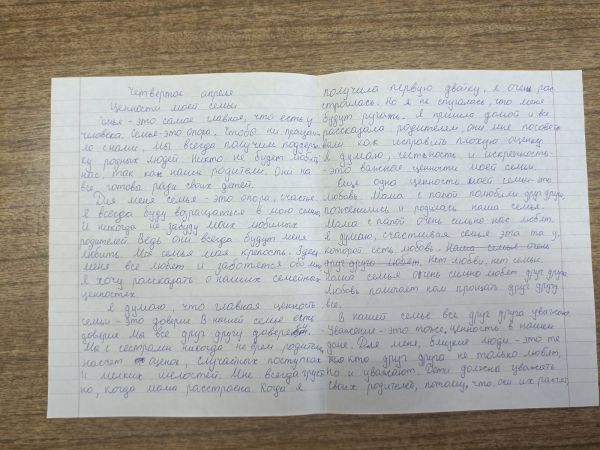 Четвертое апреля
Ценности моей семьи
Семья - это самое главное, что есть у
человека. Семья - это опора. Чтобы ни происхо-
ло с нами, мы всегда получим поддерж-
ку родных людей. Никто не будет любить
нас, так как наши родители. Они на
все готова ради своих детей.
Для меня семья - это опора, счастье.
Я всегда буду возращаться в мою семью,
И никогда не забуду моих любимых
родителей. Ведь они всегда будут меня
любить. Моя семья моя крепость. Здесь
меня все любят и заботятся обо мне.
Я хочу рассказать о наших семейных
ценностях.
Я думаю, что главная ценность
семьи - это доверие. В нашей семье есть
доверие. Мы все друг другу доверяем.
Мы с сестрами никогда не врём родителям
насчет оценок, случайных поступках
и мелких шалостей. Мне всегда груст-
но, когда мама расстроена. Когда я
получила первую двойку, я очень рас
строилась. Но я не спугалась, что меня
будут ругать. Я пришла домой и все
рассказала родителем, они мне посовето
вали как исправить плохую оценку.
Я думаю, честность и искренность-
-это важная ценности моей семьи.
Еще одна ценность моей семьи-это
любовь. Мама с папой полюбили друг друга,
поженились и родилась наша семья.
Мама с папой очень сильно нас любят.
Я думаю, счастливая семья эта та у,
которой есть любовь. Наша семья очень
друг друга любят. Нет любви, нет семьи.
Наша семья очень сильно любят друг друга.
Любовь помагает нам прощать друг другу
все.
В нашей семье все друг друга уважаю.
Уважение - это тоже, ценность в нашем
доме. Для меня, близкие люди - это те
кто друг друга не только любят,
но и уважают. Дети должна уважать
своих родителей, потому, что они их растят,